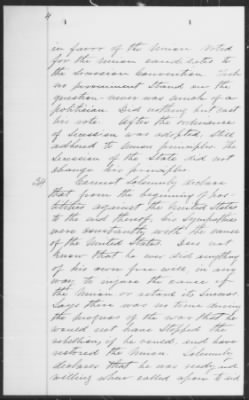 4
in favor of the Union. Voted
for the Union candidates to
the Secession Convention. Took
no prominent stand on the
question - never was much of a
politician. Did nothing but cast
his vote. After the ordinance
of Secession was adopted, still
adhered to Union principles. The
Secession of the State did not
change his principles.
Cannot solemnly declare
that from the beginning of hos-
tilities against the United States
to the end thereof, his sympathies
were constantly with the cause
of the United States. Does not
know that he ever did anything
of his own free will, in any
way to injure the cause of
the Union or
Says there was no time during
the progress of the war that he
would not have stopped the
rebellion, if he could, and have
restored the Union. Solemnly
declares that he was ready and
willing when called upon to aid